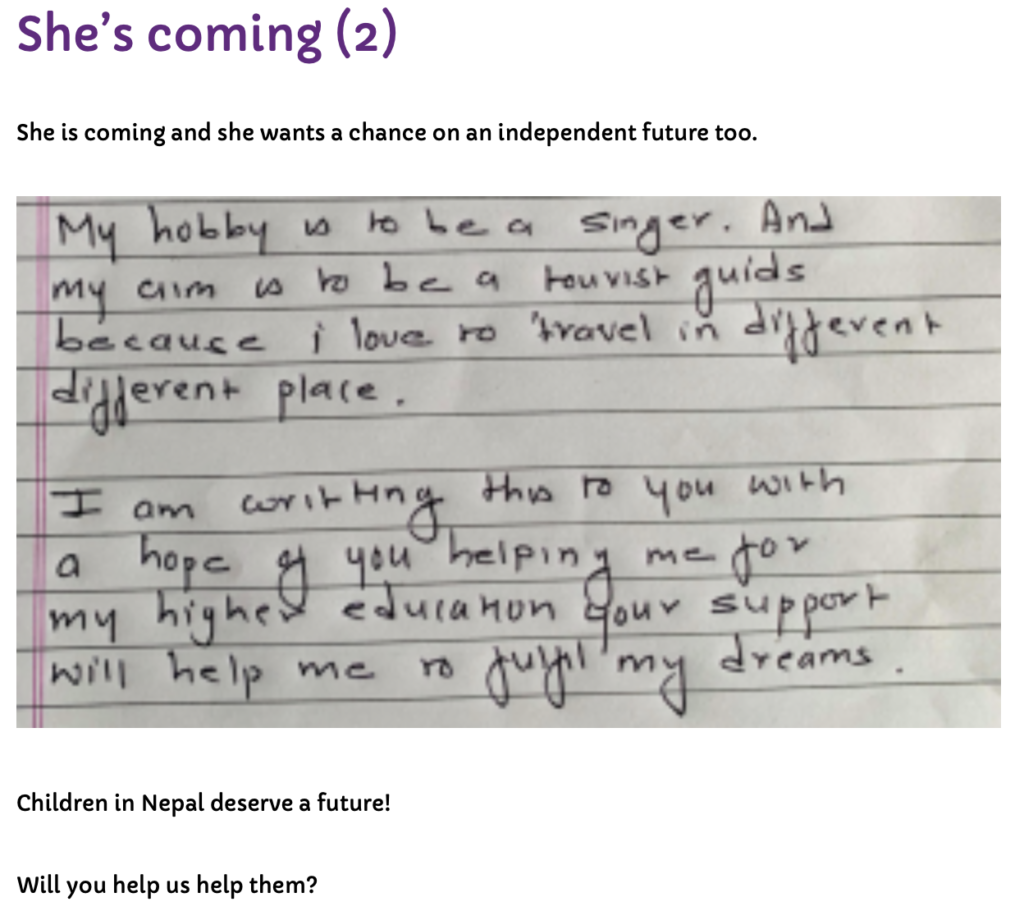 She's coming (2)
She is coming and she wants a chance on an independent future too.
My hobby is to be a singer. And
my aim is to be a tourist guids
because i love to travel in different
different place.
I am writting this to you with
a hope of you helping me for
my higher education your support
will help me to fulfil my dreams.
Children in Nepal deserve a future!
Will you help us help them?